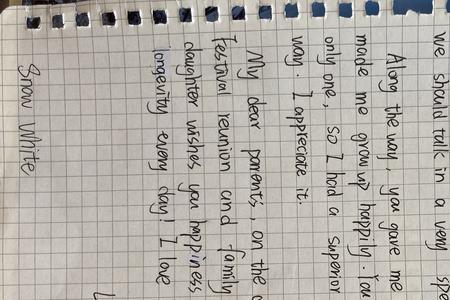 we should talk in a very spe
Along the way, you gave me
made me grow up happily. You
only one, so I had a superior
way. I appreciate it.
My dear parents, on the
Festival reunion and family
daughter wishes you happiness
longevity every day! I love
Snow White